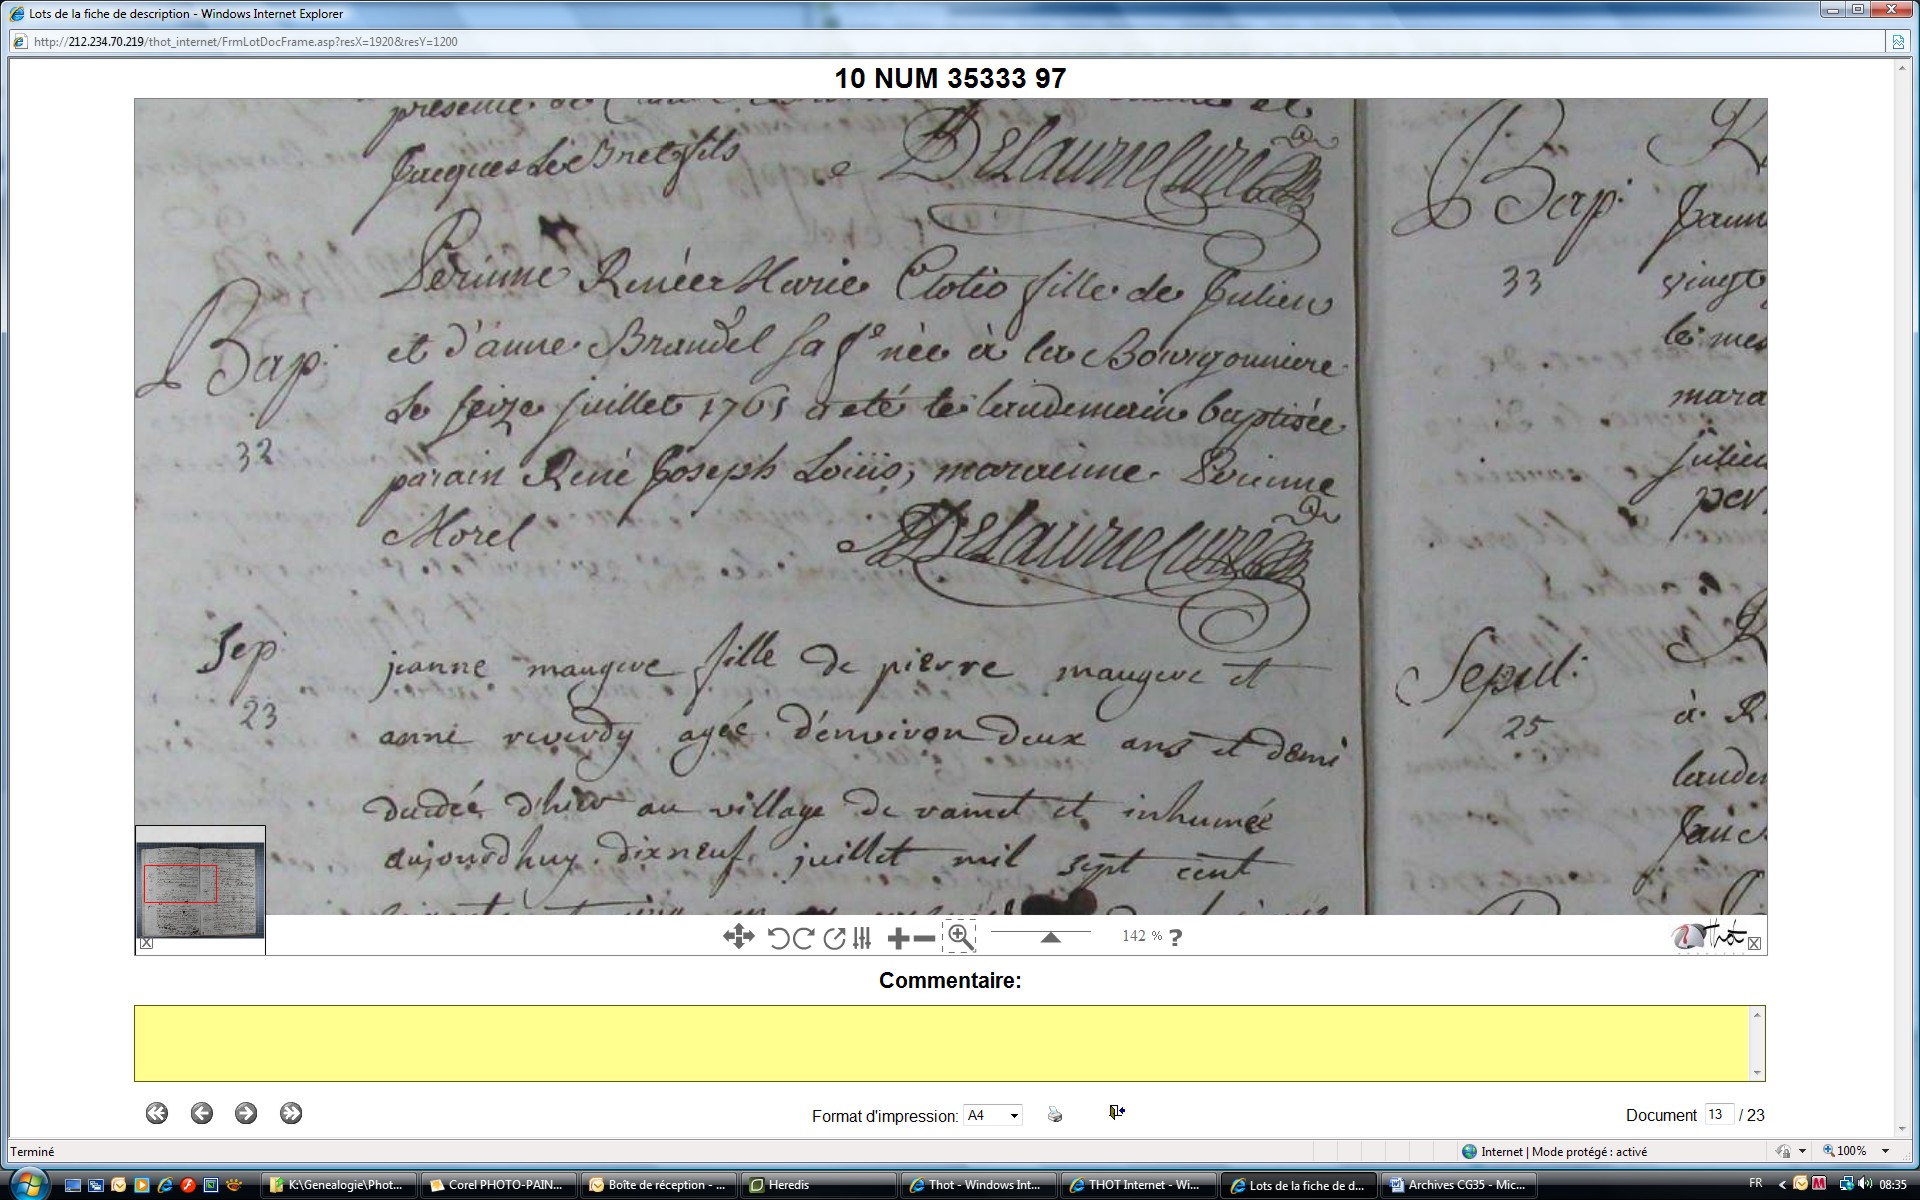 Lots de la fiche de description - Windows Internet Explorer
http://212.234.70.219/thot_internet/FrmLotDocFrame.asp?resX=1920&resY=1200
10 NUM 35333 97
presence de
Jacques Le Bret fils
DeLaunne Curé
Bap:
32
Perinne Renée Marie Clolio fille de Julien
et d'anne Brandel sa fe née à la Bourgonniere
le seize juillet 1765 a eté le landemain baptisée
parain René Joseph Loüis, marainne Perinne
Morel
DeLaunne Curé
Sep
23
jeanne maugere fille de pierre maugere et
anne reverdy agée d'environ deux ans et demi
decedée d'hier au village de vamet et inhumée
aujourdhuy dixneuf juillet mil sept cent
Bap:
33
vingt
le mes
mara
Sepul:
25
à R
142 %
?
Thot
Commentaire:
Format d'impression: A4
Document 13 / 23
Terminé
Internet | Mode protégé : activé
100%
K:\Genealogie\Phot...
Corel PHOTO-PAIN...
Boîte de réception - ...
Heredis
Thot - Windows Int...
THOT Internet - Wi...
Lots de la fiche de d...
Archives CG35 - Mic...
FR
08:35